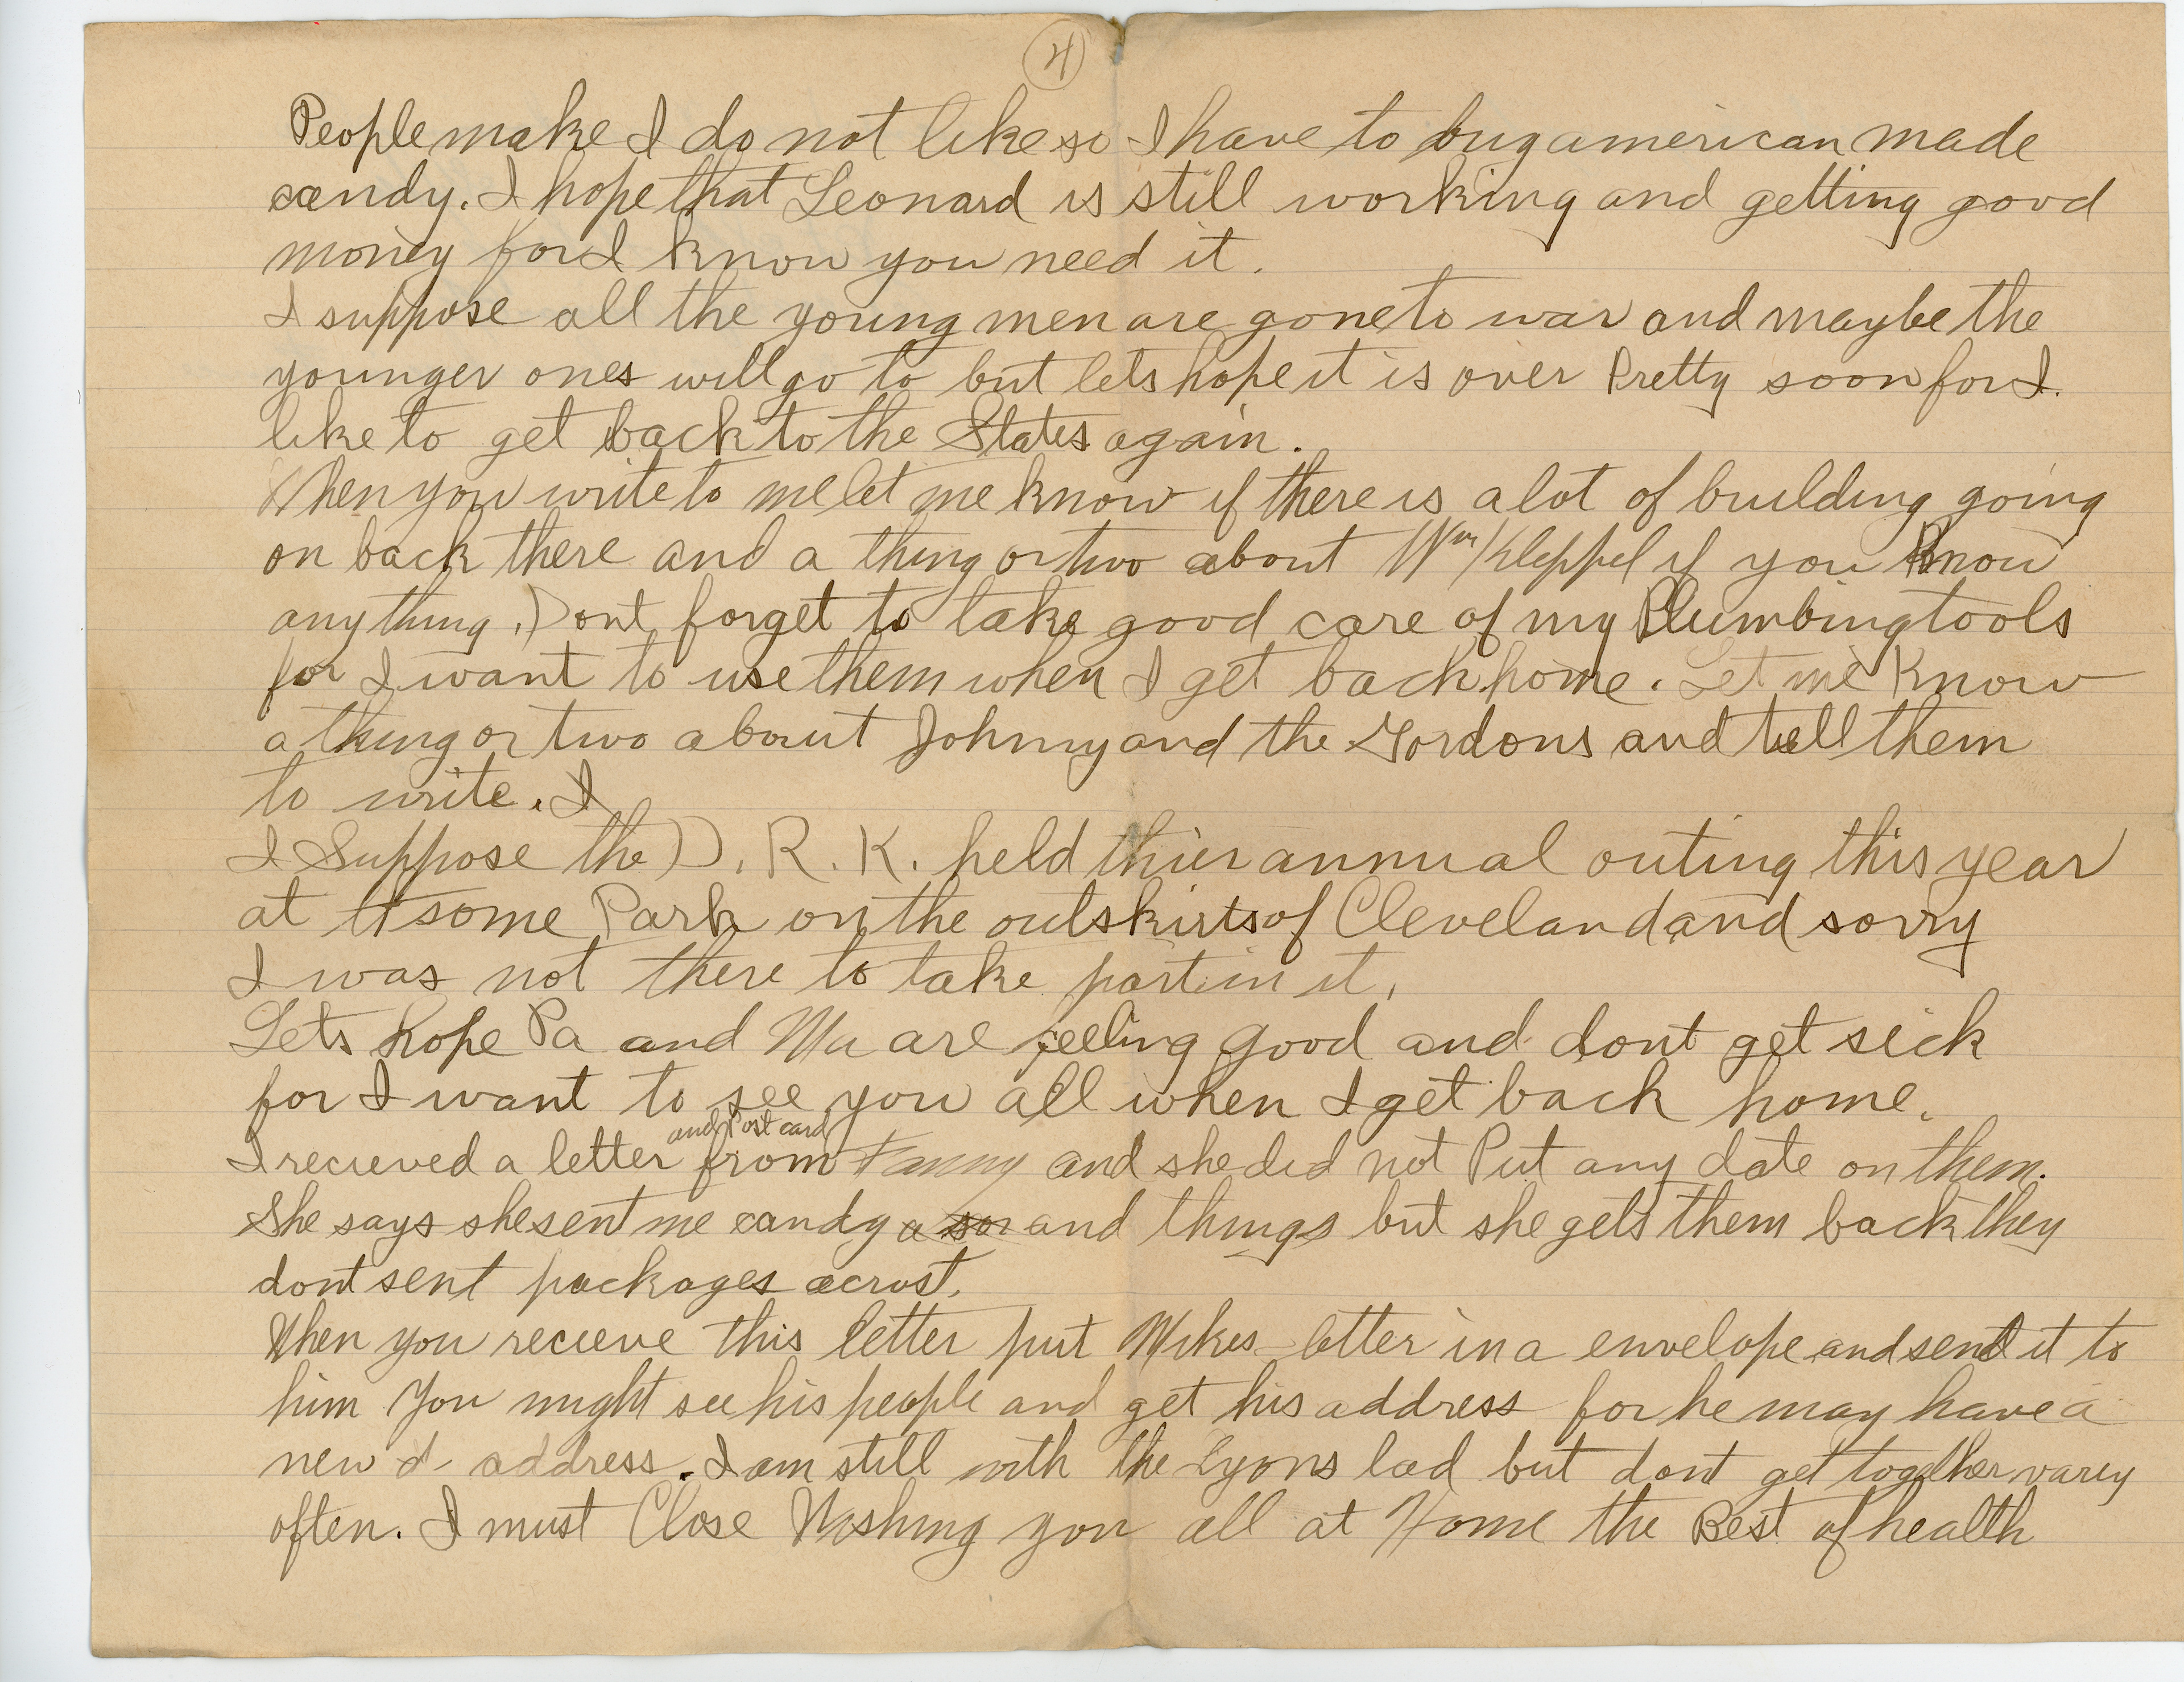 4
People make I do not like so I have to buy american made
candy. I hope that Leonard is still working and getting good
money for I know you need it.
I suppose all the young men are gone to war and maybe the
younger ones will go to but lets hope it is over Pretty soon for I
like to get back to the States again.
When you write to me let me know if there is a lot of building going
on back there and a thing or two about Wm Kleppel if you Know
anything. Dont forget to take good care of my Plumbing tools
for I want to use them when I get back home. Let me Know
a thing or two about Johnny and the Gordons and tell them
to write. I
I Suppose the D. R. K. held thier annual outing this year
at some Park on the outskirts of Cleveland and sorry
I was not there to take part in it.
Lets hope Pa and Ma are feeling good and dont get sick
for I want to see you all when I get back home.
and Post card
I recieved a letter from Fanny and she did not Put any date on them.
She says she sent me candy a and things but she gets them back they
dont sent packages acrost.
When you recieve this letter put Mikes letter in a envelope and send it to
him You might see his people and get his address for he may have a
new address. I am still with the Lyons lad but dont get together varey
often. I must Close Wishing you all at Home the Best of health